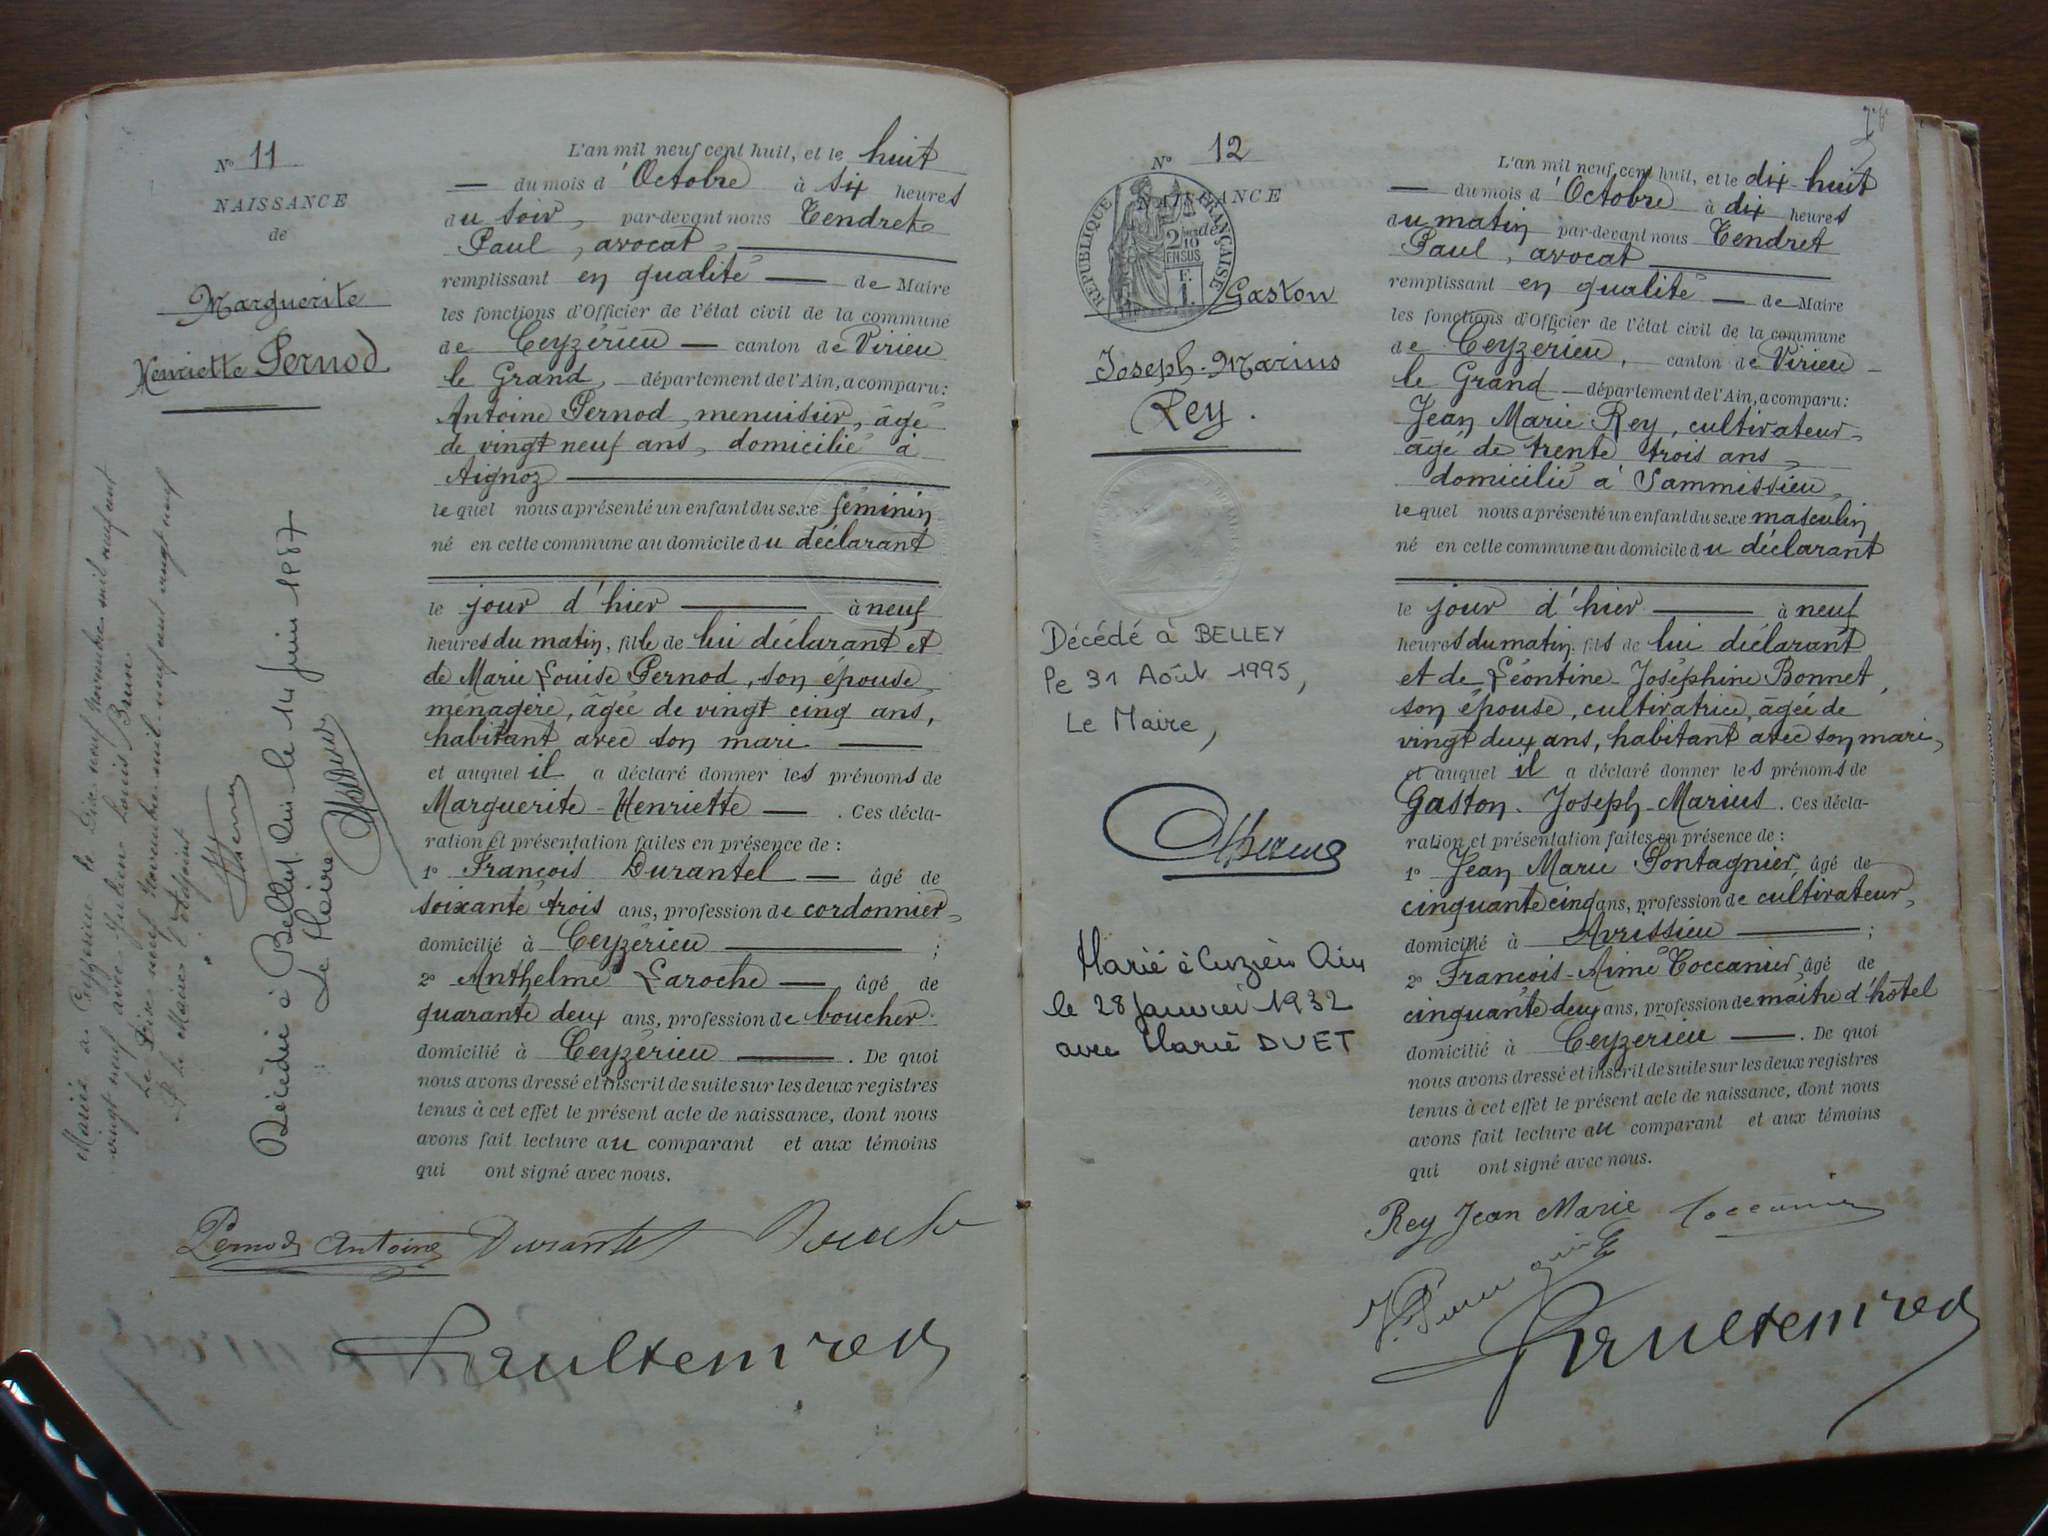 N° 11
NAISSANCE
de
Marguerite
Henriette Pernod
L'an mil neuf cent huit, et le huit
— du mois d'Octobre à six heures
du soir, par-devant nous Tendret
Paul, avocat
remplissant en qualité — de Maire
les fonctions d'Officier de l'état civil de la commune
de Ceyzérieu — canton de Virieu
le Grand, département de l'Ain, a comparu:
Antoine Pernod, menuisier, âgé
de vingt neuf ans, domicilié à
Aignoz
lequel nous a présenté un enfant du sexe féminin
né en cette commune au domicile du déclarant
le jour d'hier — à neuf
heures du matin, fille de lui déclarant et
de Marie Louise Pernod, son épouse,
ménagère, âgée de vingt cinq ans,
habitant avec son mari —
et auquel il a déclaré donner les prénoms de
Marguerite-Henriette — . Ces décla-
ration et présentation faites en présence de :
1° François Durantel — âgé de
soixante trois ans, profession de cordonnier,
domicilié à Ceyzérieu — ;
2° Anthelme Laroche — âgé de
quarante deux ans, profession de boucher
domicilié à Ceyzérieu — . De quoi
nous avons dressé et inscrit de suite sur les deux registres
tenus à cet effet le présent acte de naissance, dont nous
avons fait lecture au comparant et aux témoins
qui ont signé avec nous.
Mariée à Ceyzérieu le Dix neuf Novembre mil neuf cent
vingt neuf avec Julien Louis Brun
Le Dix neuf Novembre mil neuf cent vingt neuf
P. le Maire l'adjoint
Décédée à Belley, Ain le 14 Juin 1987
Le Maire
Pernod Antoine Durantel
Paul Tendret
N° 12
NAISSANCE
de
RÉPUBLIQUE FRANÇAISE
2 10
EN SUS
Gaston
Joseph-Marius
Rey.
Décédé à BELLEY
le 31 Août 1995,
Le Maire,
Marié à Cuzieu Ain
le 28 Janvier 1932
avec Marie DUET
L'an mil neuf cent huit, et le dix-huit
— du mois d'Octobre à dix heures
du matin par-devant nous Tendret
Paul, avocat
remplissant en qualité — de Maire
les fonctions d'Officier de l'état civil de la commune
de Ceyzerieu, canton de Virieu
le Grand — département de l'Ain, a comparu:
Jean Marie Rey, cultivateur,
âgé de trente trois ans,
domicilié à Vammissieu,
lequel nous a présenté un enfant du sexe masculin
né en cette commune au domicile du déclarant
le jour d'hier — à neuf
heures du matin, fils de lui déclarant
et de Léontine-Joséphine Bonnet,
son épouse, cultivatrice, âgée de
vingt deux ans, habitant avec son mari,
et auquel il a déclaré donner les prénoms de
Gaston-Joseph-Marius. Ces décla-
ration et présentation faites en présence de :
1° Jean Marie Pontagnier, âgé de
cinquante cinq ans, profession de cultivateur,
domicilié à Avrissieu — ;
2° François-Aimé Toccanier, âgé de
cinquante deux ans, profession de maître d'hôtel
domicilié à Ceyzerieu — . De quoi
nous avons dressé et inscrit de suite sur les deux registres
tenus à cet effet le présent acte de naissance, dont nous
avons fait lecture au comparant et aux témoins
qui ont signé avec nous.
Rey Jean Marie Toccanier
Paul Tendret